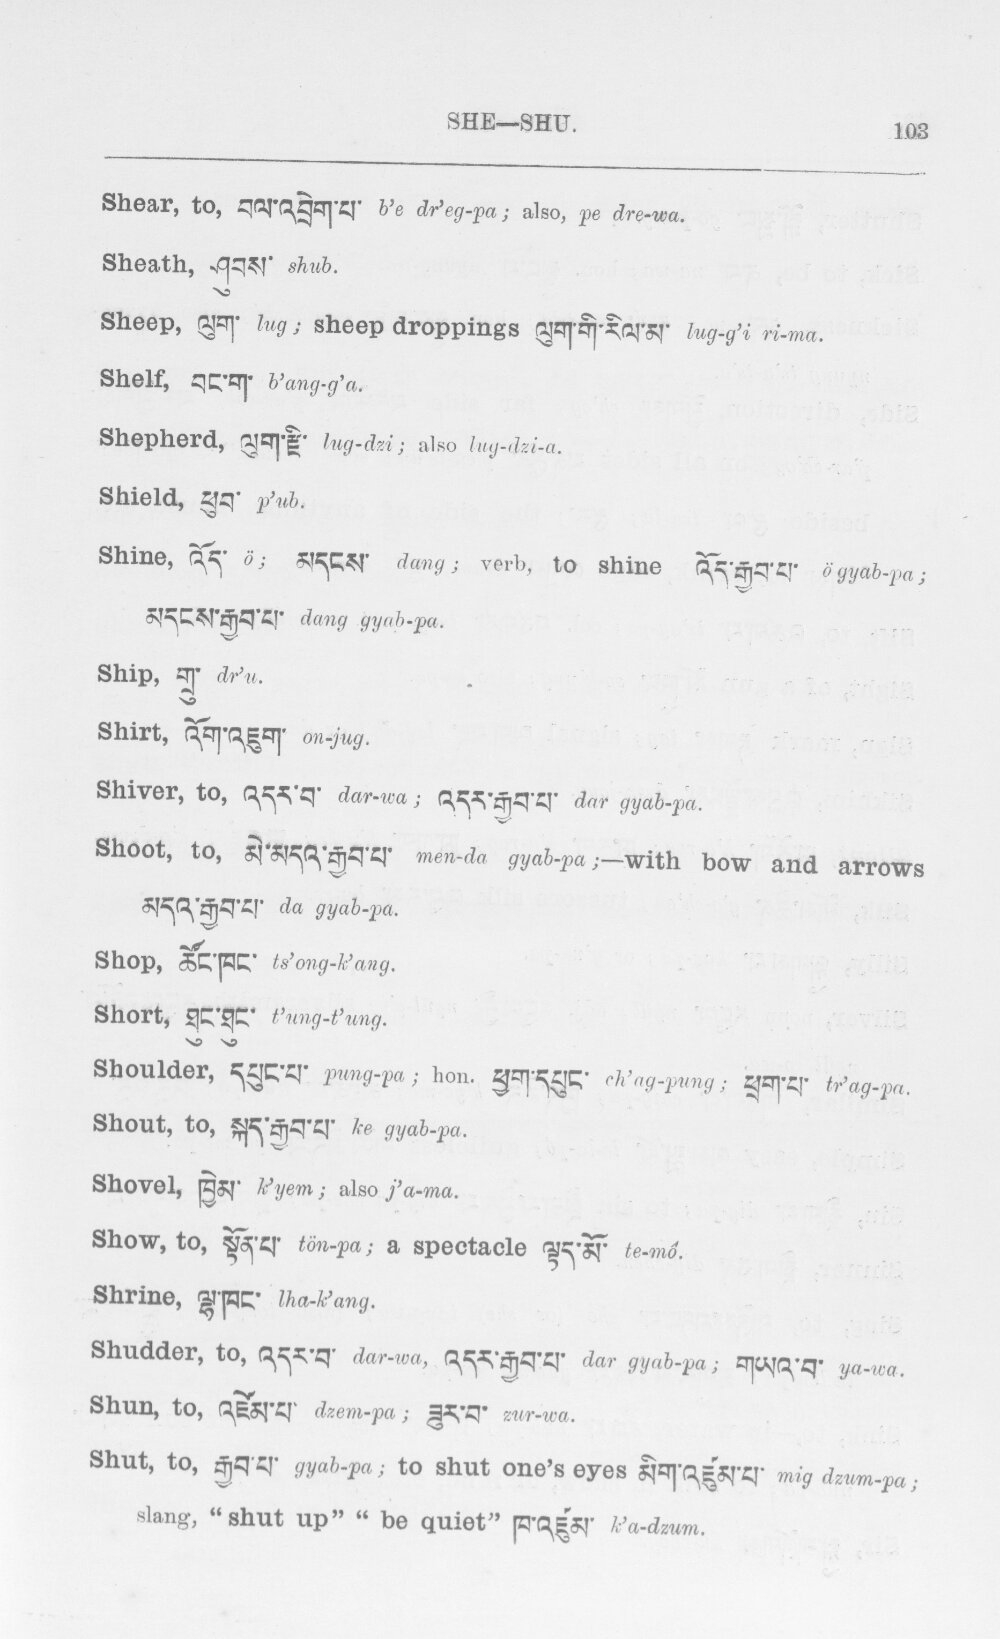 SHE—SHU.
103
Shear, to, བལ་འབྲེག་པ་ b’e dr’eg-pa; also, pe dre-wa.
Sheath, ཤུབས་ shub.
Sheep, ལུག་ lug; sheep droppings ལུག་གི་རིལ་མ་ lug-g’i ri-ma.
Shelf, བང་ག་ b’ang-g’a.
Shepherd, ལུག་རྫི་ lug-dzi; also lug-dzi-a.
Shield, ཕུབ་ p’ub.
Shine, འོད་ ö; མདངས་ dang; verb, to shine འོད་རྒྱབ་པ་ ö gyab-pa;
མདངས་རྒྱབ་པ་ dang gyab-pa.
Ship, གྲུ་ dr’u.
Shirt, འོག་འཇུག་ on-jug.
Shiver, to, འདར་བ་ dar-wa; འདར་རྒྱབ་པ་ dar gyab-pa.
Shoot, to, མེ་མདའ་རྒྱབ་པ་ men-da gyab-pa;—with bow and arrows
མདའ་རྒྱབ་པ་ da gyab-pa.
Shop, ཚོང་ཁང་ ts’ong-k’ang.
Short, ཐུང་ཐུང་ t’ung-t’ung.
Shoulder, དཔུང་པ་ pung-pa; hon. ཕྱག་དཔུང་ ch’ag-pung; ཕྲག་པ་ tr’ag-pa.
Shout, to, སྐད་རྒྱབ་པ་ ke gyab-pa.
Shovel, ཁྱེམ་ k’yem; also j’a-ma.
Show, to, སྟོན་པ་ tön-pa; a spectacle ལྟད་མོ་ te-mó.
Shrine, ལྷ་ཁང་ lha-k’ang.
Shudder, to, འདར་བ་ dar-wa, འདར་རྒྱབ་པ་ dar gyab-pa; གཡའ་བ་ ya-wa.
Shun, to, འཛེམ་པ་ dzem-pa; ཟུར་བ་ zur-wa.
Shut, to, རྒྱབ་པ་ gyab-pa; to shut one’s eyes མིག་འཛུམ་པ་ mig dzum-pa;
slang, “shut up” “ be quiet” ཁ་འཛུམ་ k’a-dzum.